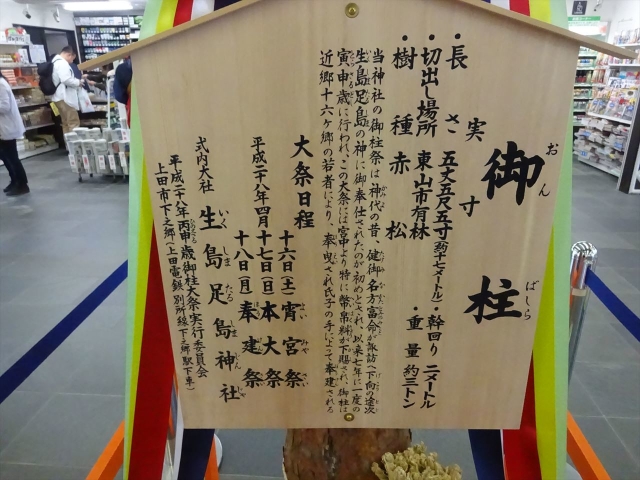 御柱
おん ばしら
実寸
・長さ 五丈五尺五寸(約十七メートル)・幹回り 二メートル
・切出し場所 東山市有林 ・重量 約三トン
・樹種 赤松
当神社の御柱祭は神代の昔、健御名方富命が諏訪へ下向の途次
生島足島の神に御奉仕されたのが初めとされ、以来七年に一度の
寅申歳に行われ、この大祭には宮中より特に幣帛料が下賜され、御柱は
近郷十六ヶ郷の若者により、奉曳され氏子の手によって奉建される
大祭日程
平成二十八年四月
十六日(土)宵宮祭
十七日(日)本大祭
十八日(月)奉建祭
式内大社 生島足島神社
いくしまたるしまじんじゃ
平成二十八年丙申歳御柱大祭実行委員会
上田市下之郷(上田電鉄別所線下之郷駅下車)